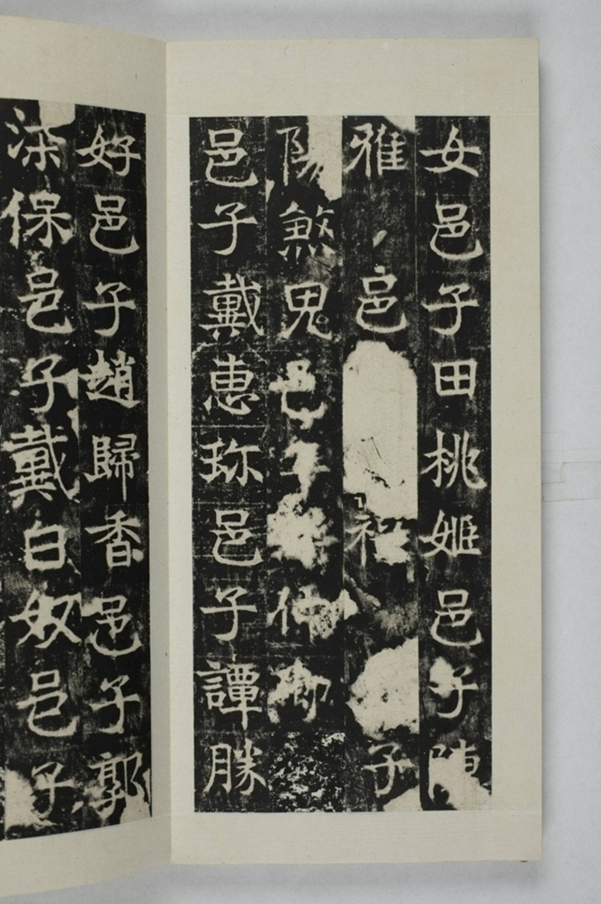 女邑子田桃姬邑子陳
雅邑子
陽煞鬼邑子仰
邑子戴惠珎邑子譚勝
好邑子趙歸香邑子郭
保邑子戴白奴邑子